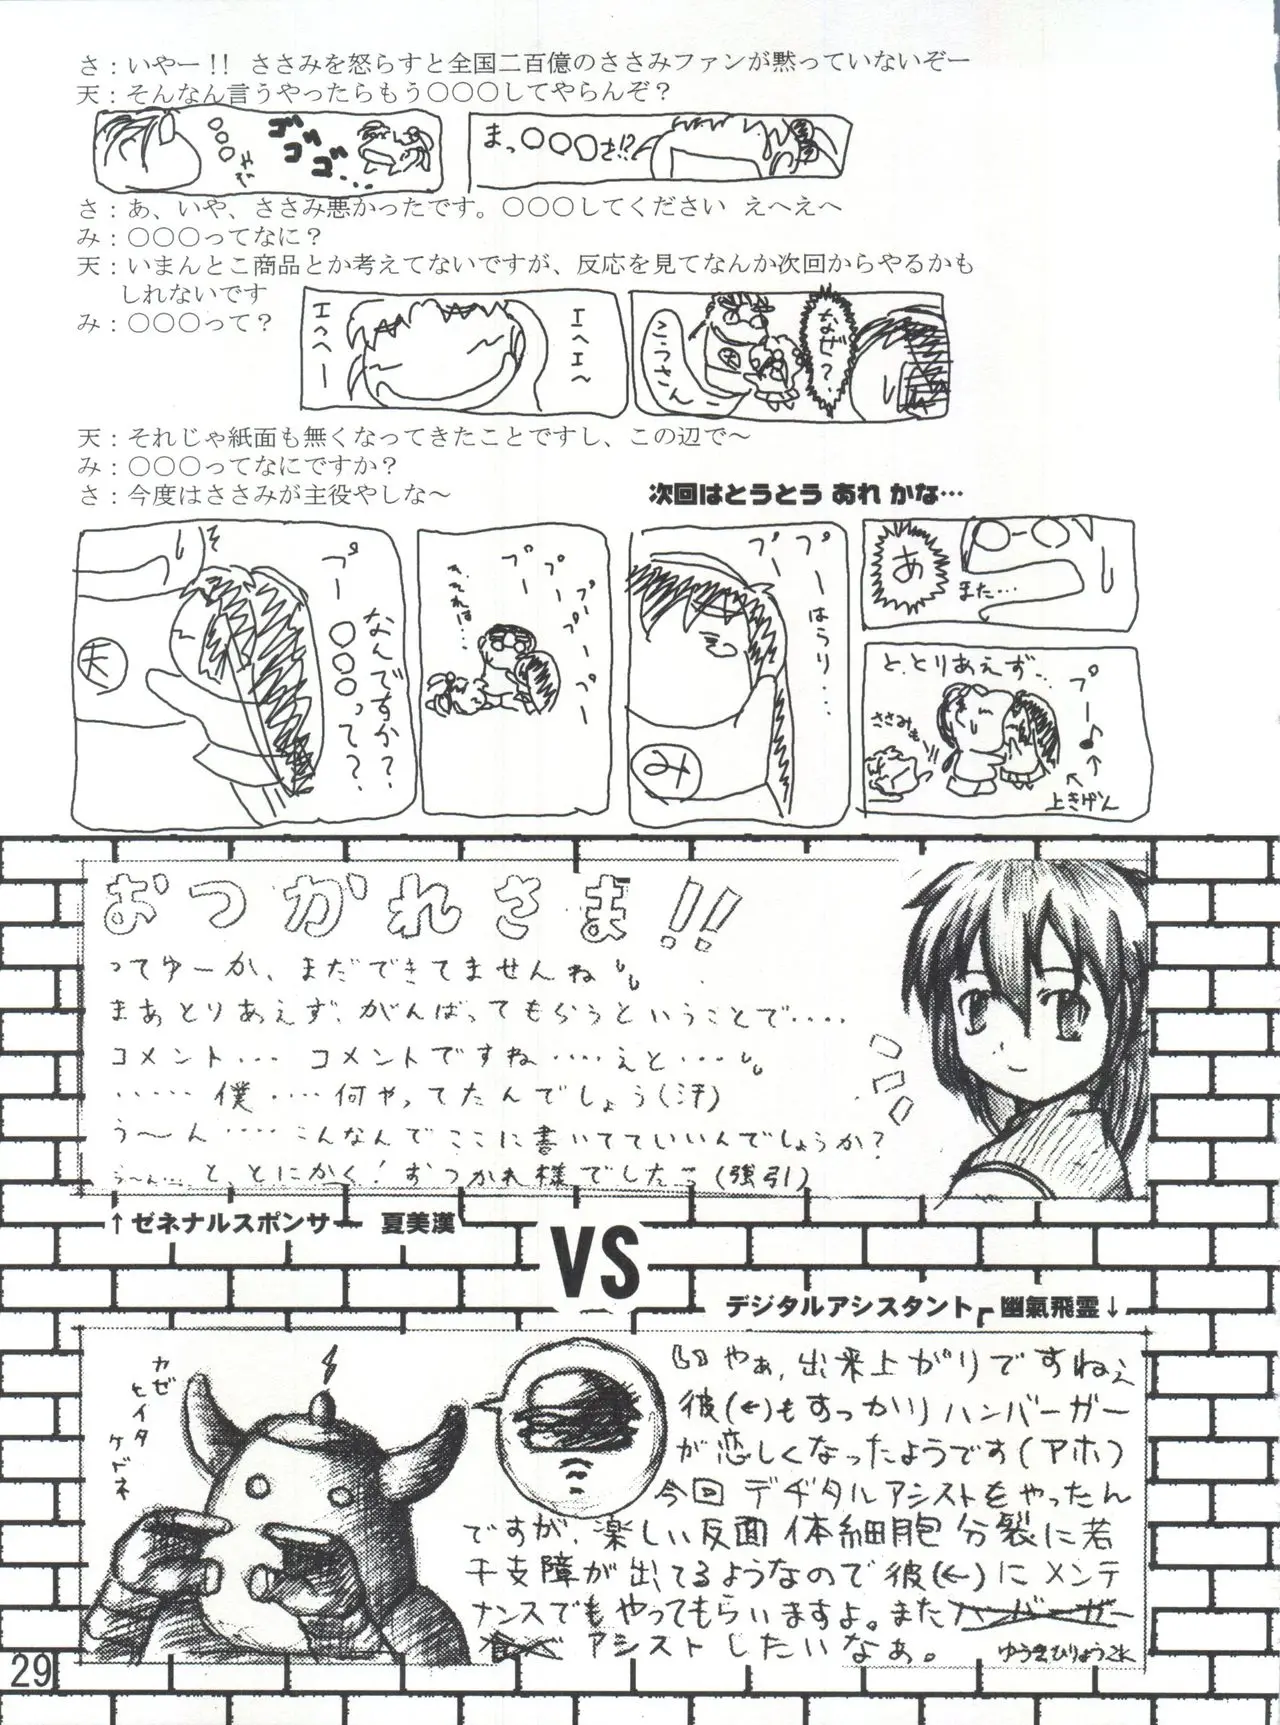 さ：いやー!! ささみを怒らすと全国二百億のささみファンが黙っていないぞー
天：そんなん言うやったらもう○○○してやらんぞ？
○○○やで
ゴゴゴゴ…
まっ○○○さ!?
さ：あ、いや、ささみ悪かったです。○○○してください えへえへ
み：○○○ってなに？
天：いまんとこ商品とか考えてないですが、反応を見てなんか次回からやるかも
しれないです
み：○○○って？
エへへー
エヘエ〜
なぜ？
天
天：それじゃ紙面も無くなってきたことですし、この辺で〜
み：○○○ってなにですか？
さ：今度はささみが主役やしな〜
次回はとうとう あれ かな…
そ
プー
○○○って？
なんですか？
天
そ、それは…
プー
プー
プー
プー
プー
プーはうり…
み
あ
また…
と、とりあえず…
プー♪
ささみも
↑上きげん
おつかれさま!!
ってゆーか、まだできてませんね
まあとりあえず、がんばってもらうということで‥‥
コメント‥‥ コメントですね‥‥えと‥‥
‥‥‥僕‥‥何やってたんでしょう(汗)
う〜ん‥‥こんなんでここに書いてていいんでしょうか？
う〜ん…と、とにかく！おつかれ様でした (強引)
↑ゼネナルスポンサー 夏美漢
VS
デジタルアシスタント 幽氣飛霊↓
カゼ
ヒイタ
ケドネ
やぁ、出来上がりですねぇ
彼(←)もすっかりハンバーガー
が恋しくなったようです(アホ)
今回 デヂタルアシストをやったん
ですが、楽しい反面 体細胞分裂に若
干支障が出てるようなので彼(←)にメンテ
ナンスでもやってもらいますよ。またハンバーガー
食べ アシストしたいなぁ。
29